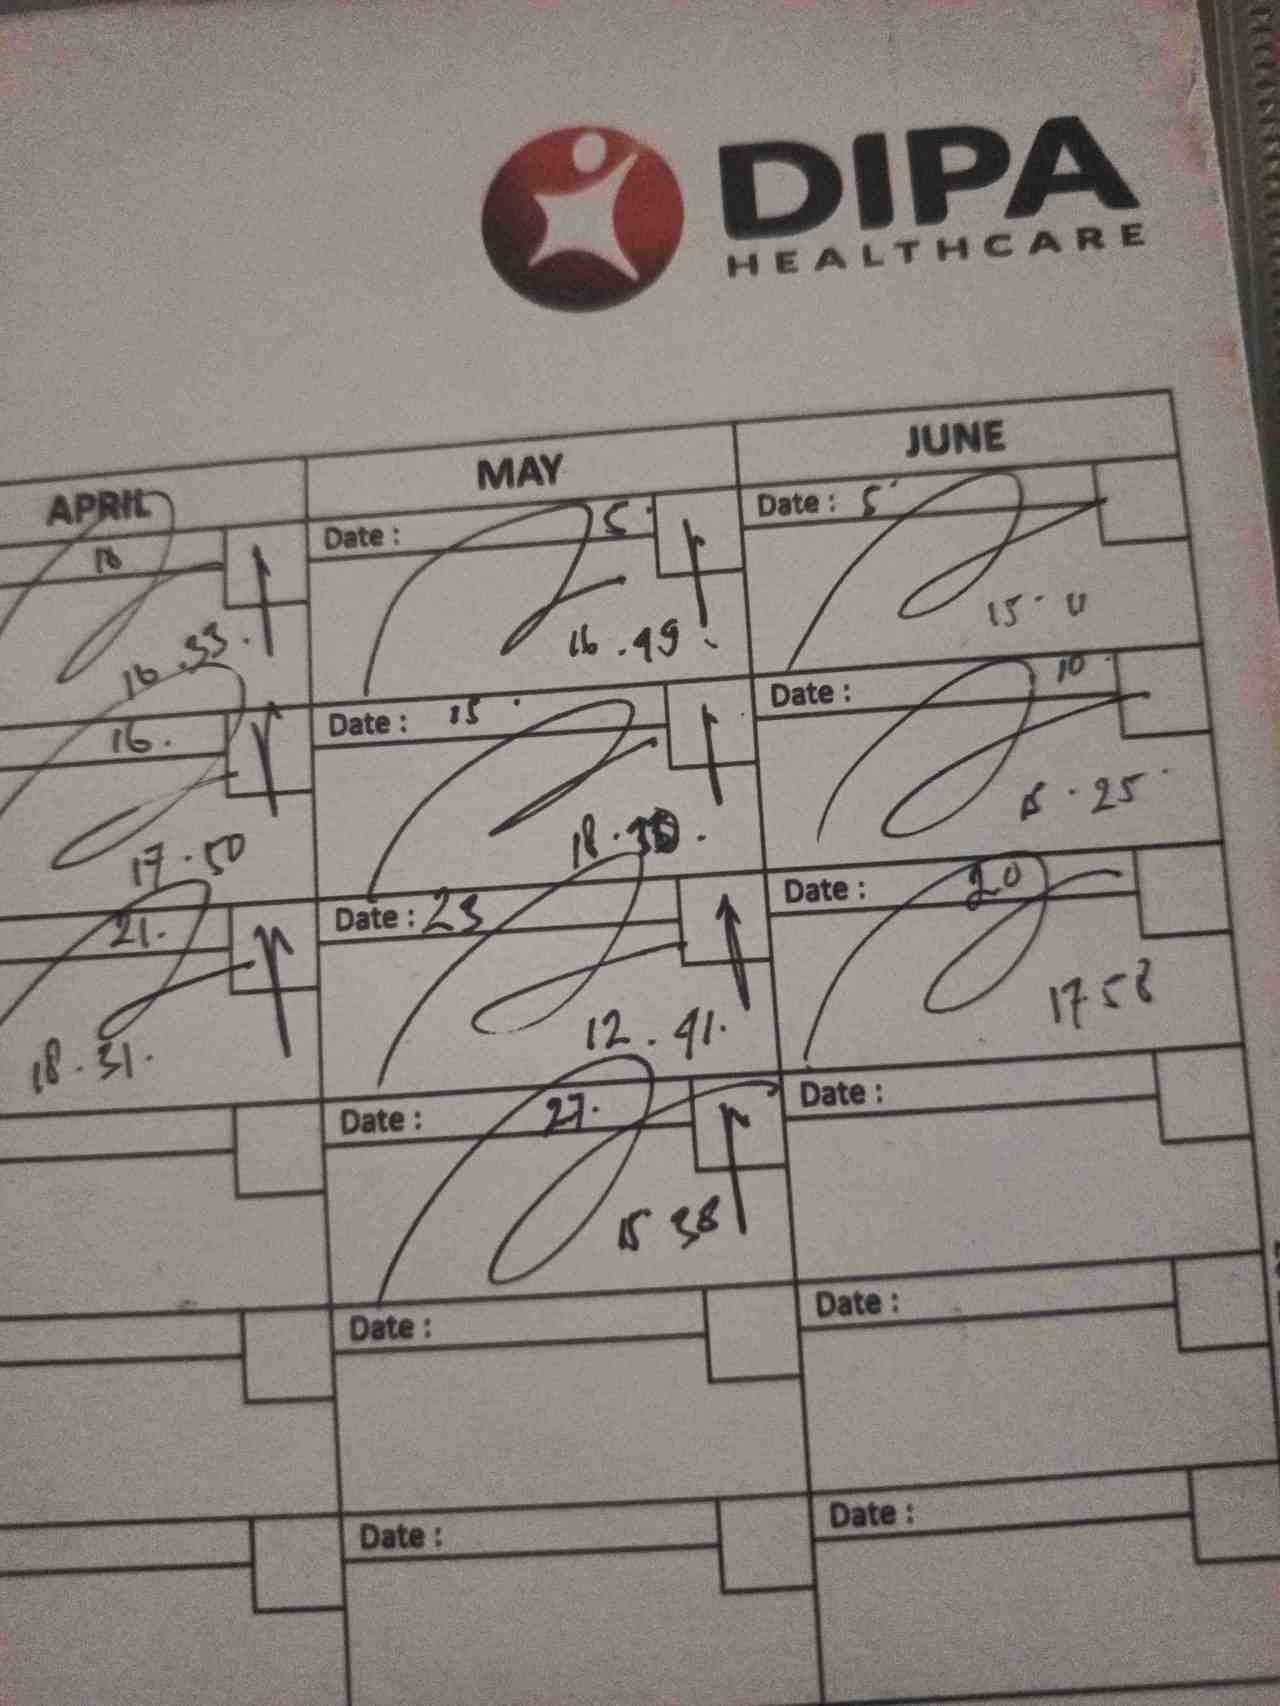 DIPA
HEALTHCARE
APRIL
MAY
JUNE
Date : 5
Date : 5
16.33.
16.49
15.
Date : 15
Date : 10
16.
17.50
18.
15.25
21.
Date : 23
Date : 20
18.31.
12.41.
17 58
Date : 27.
Date :
15 38
Date :
Date :
Date :
Date :